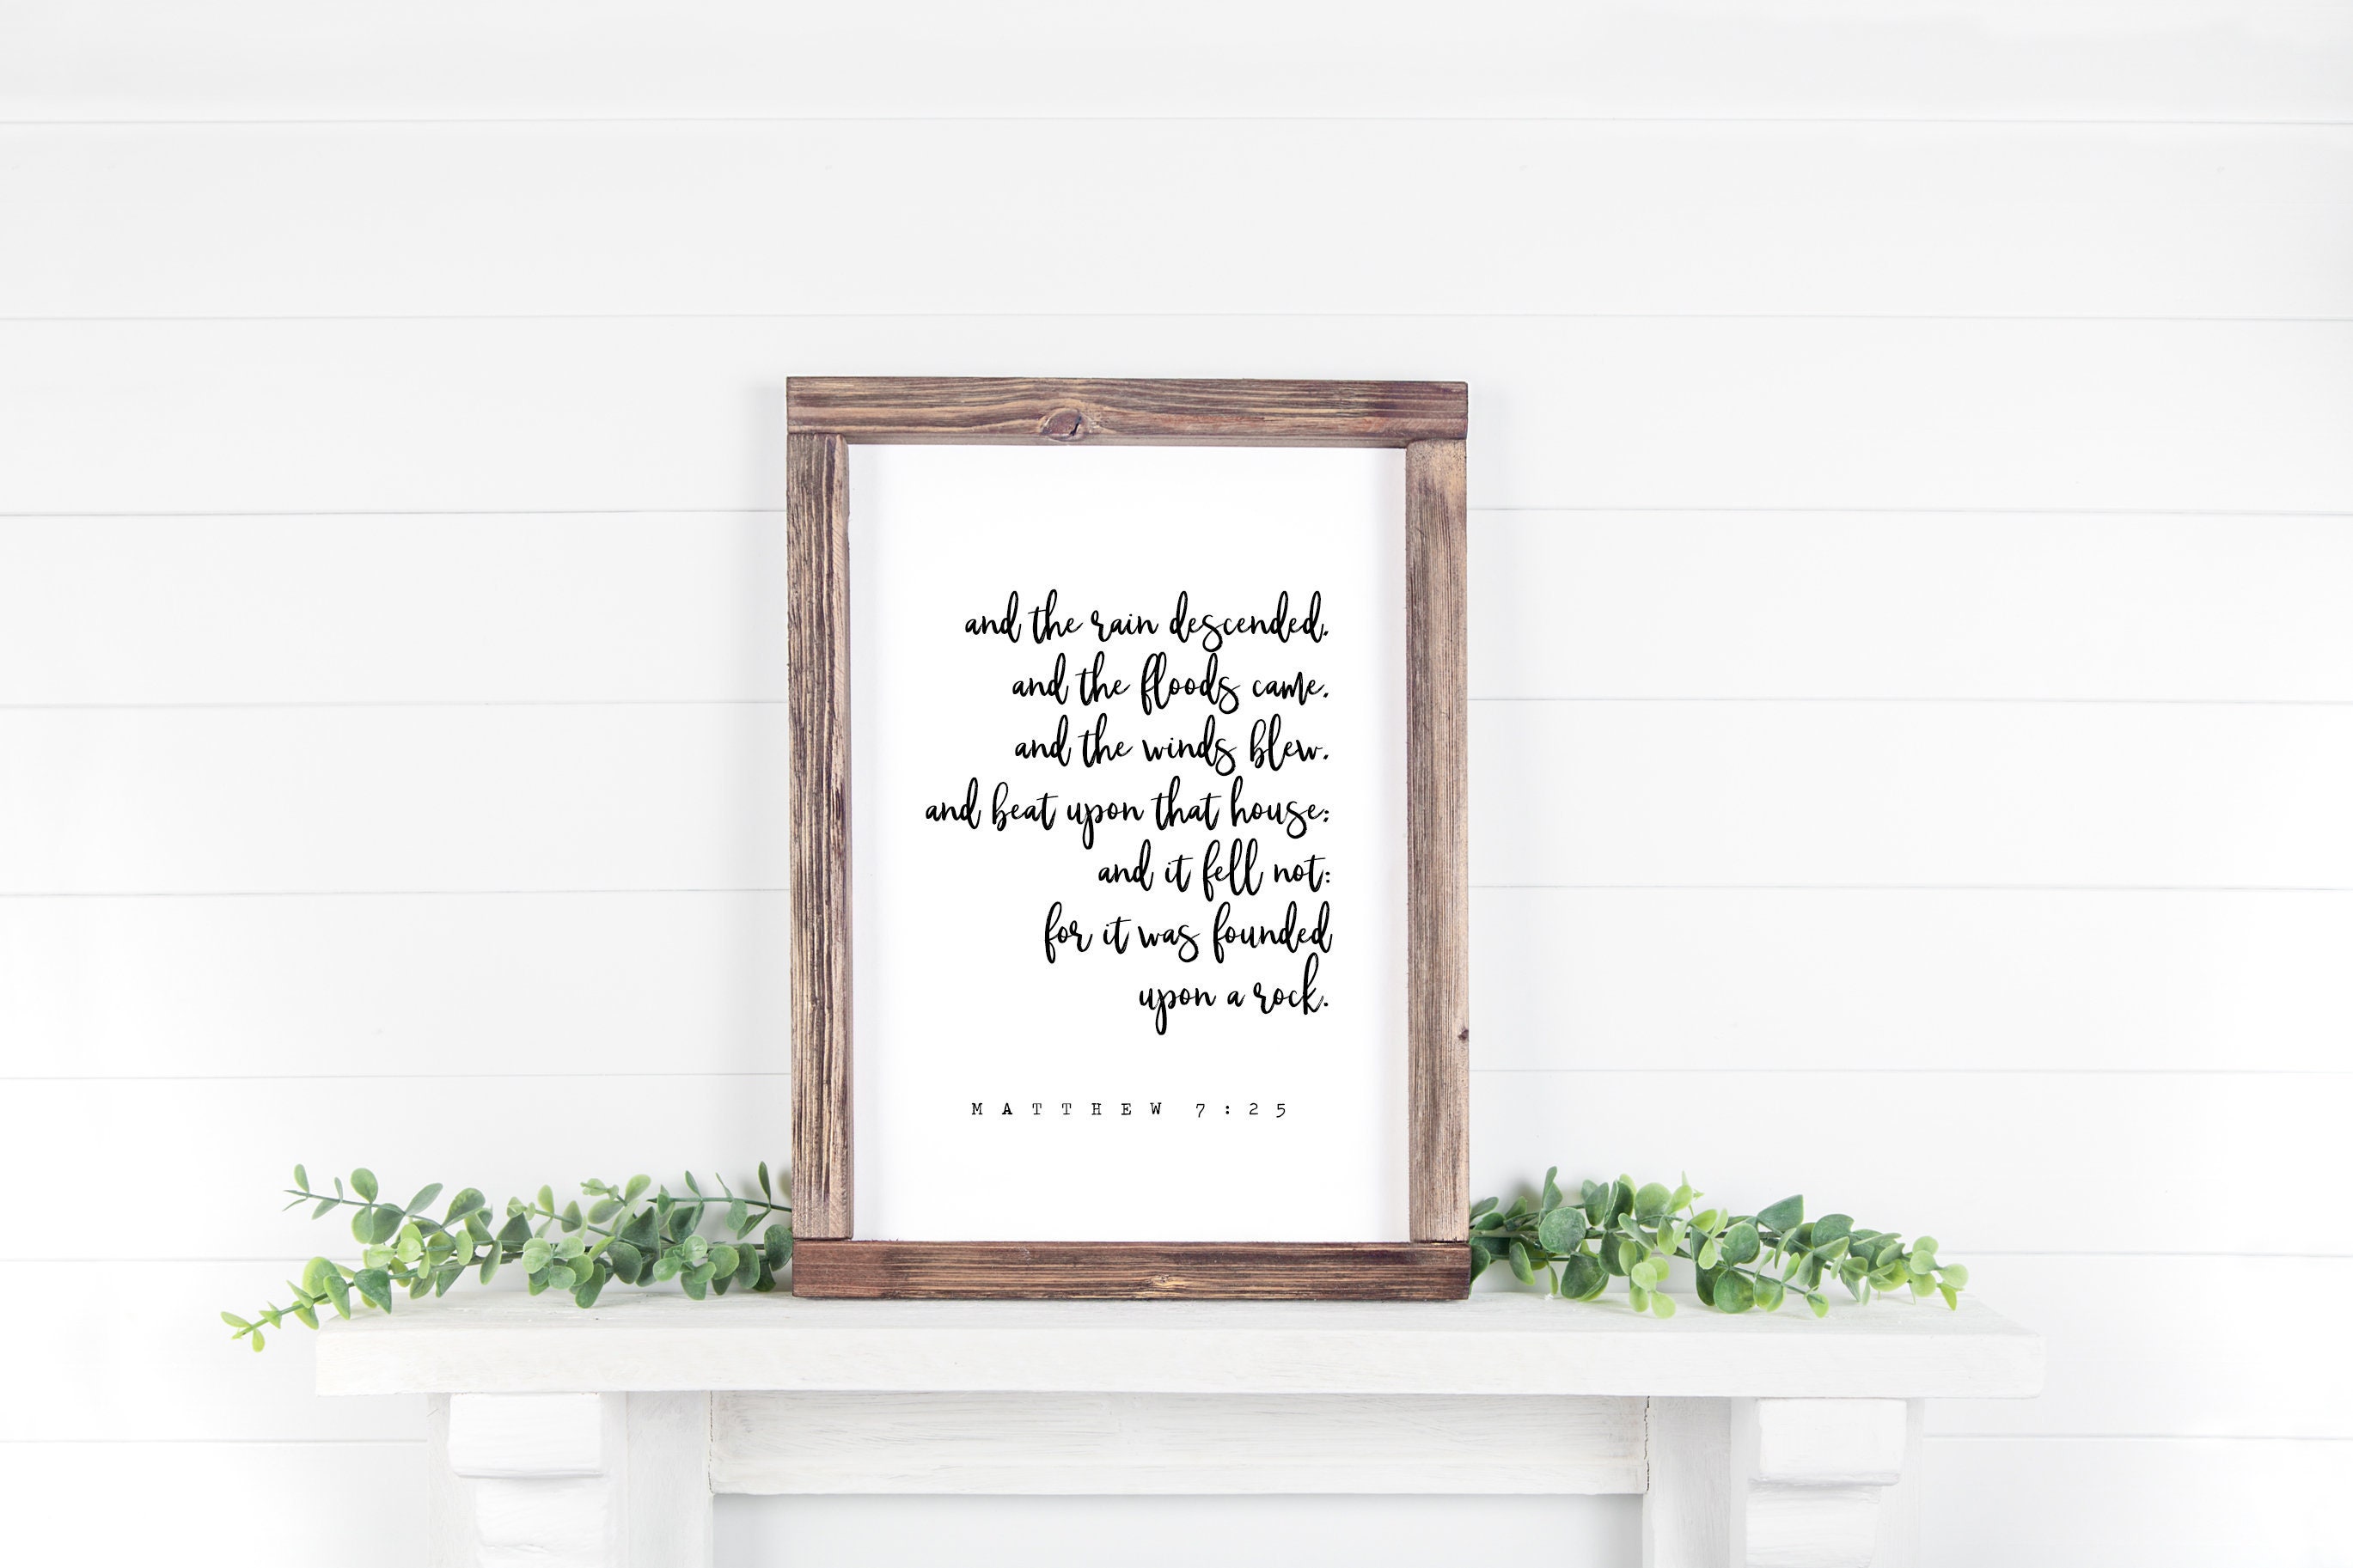 and the rain descended,
and the floods came,
and the winds blew,
and beat upon that house;
and it fell not:
for it was founded
upon a rock.
MATTHEW 7:25